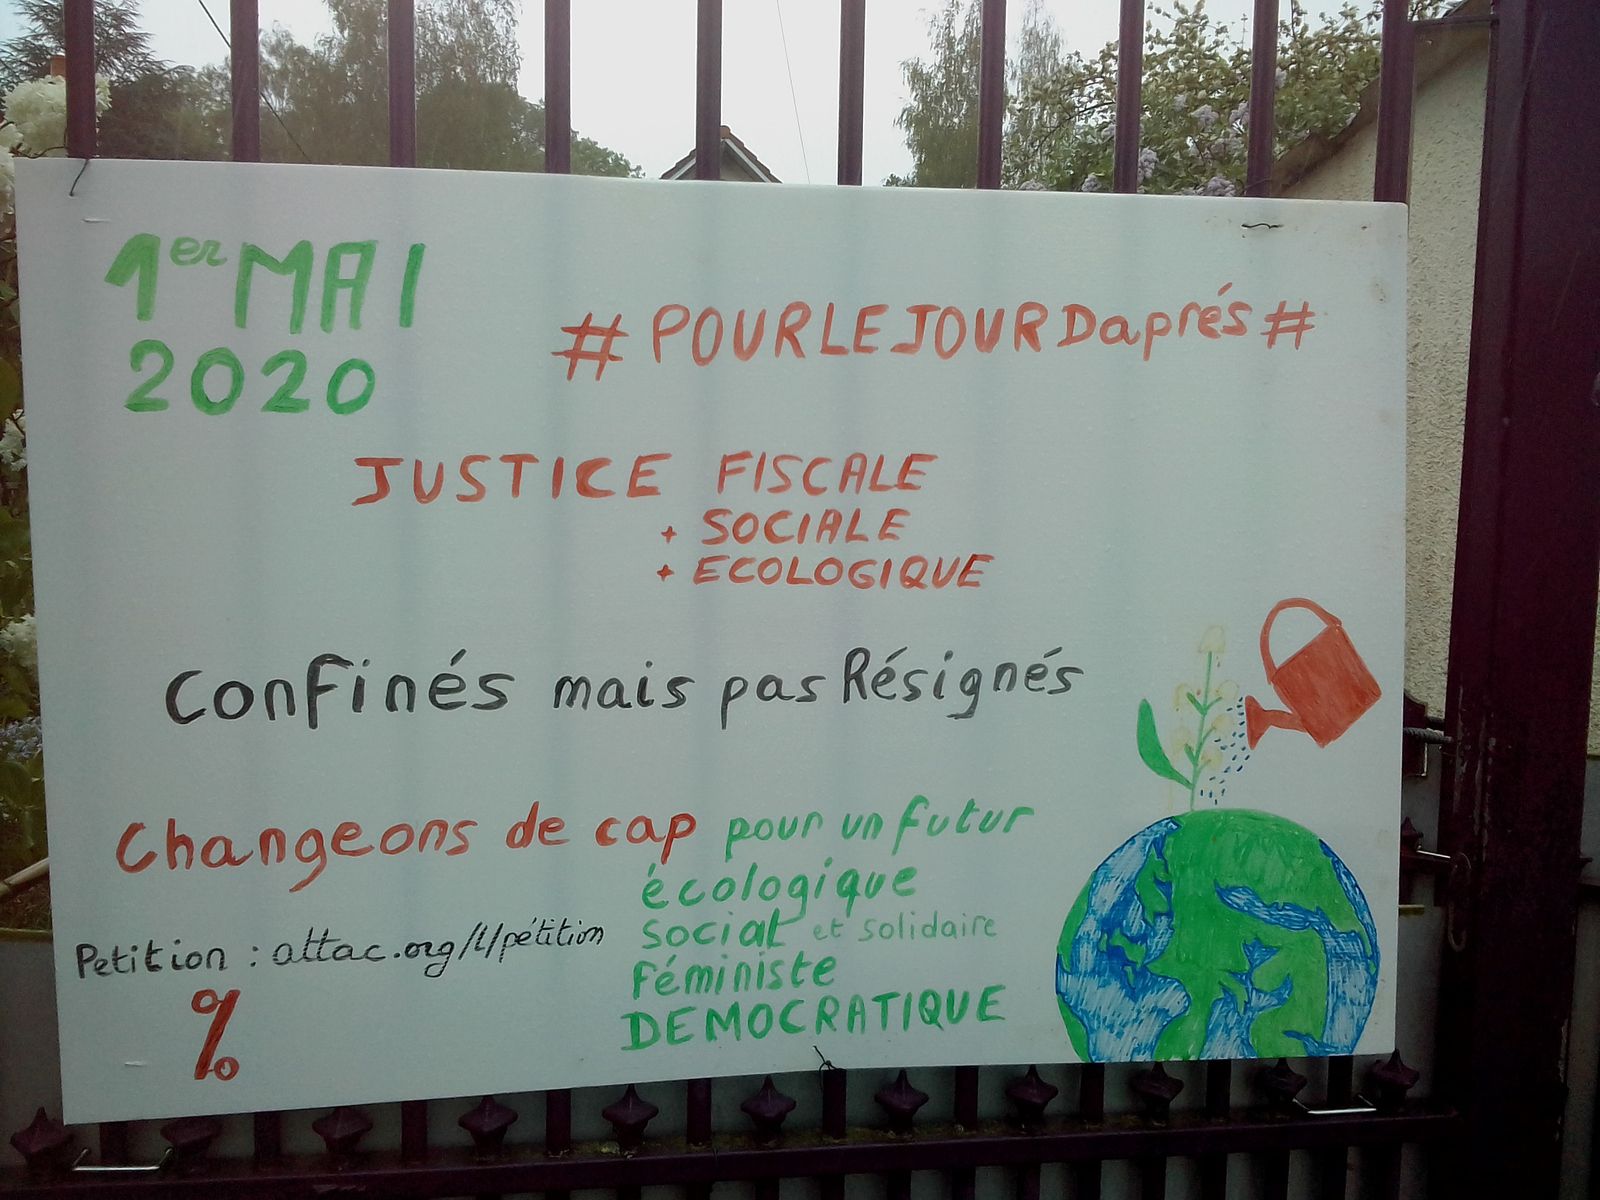 1er MAI
2020
#POURLEJOURDaprés#
JUSTICE FISCALE
+ SOCIALE
+ ECOLOGIQUE
Confinés mais pas Résignés
Changeons de cap pour un futur
écologique
social et solidaire
féministe
DEMOCRATIQUE
Petition : attac.org/l/pétition
%